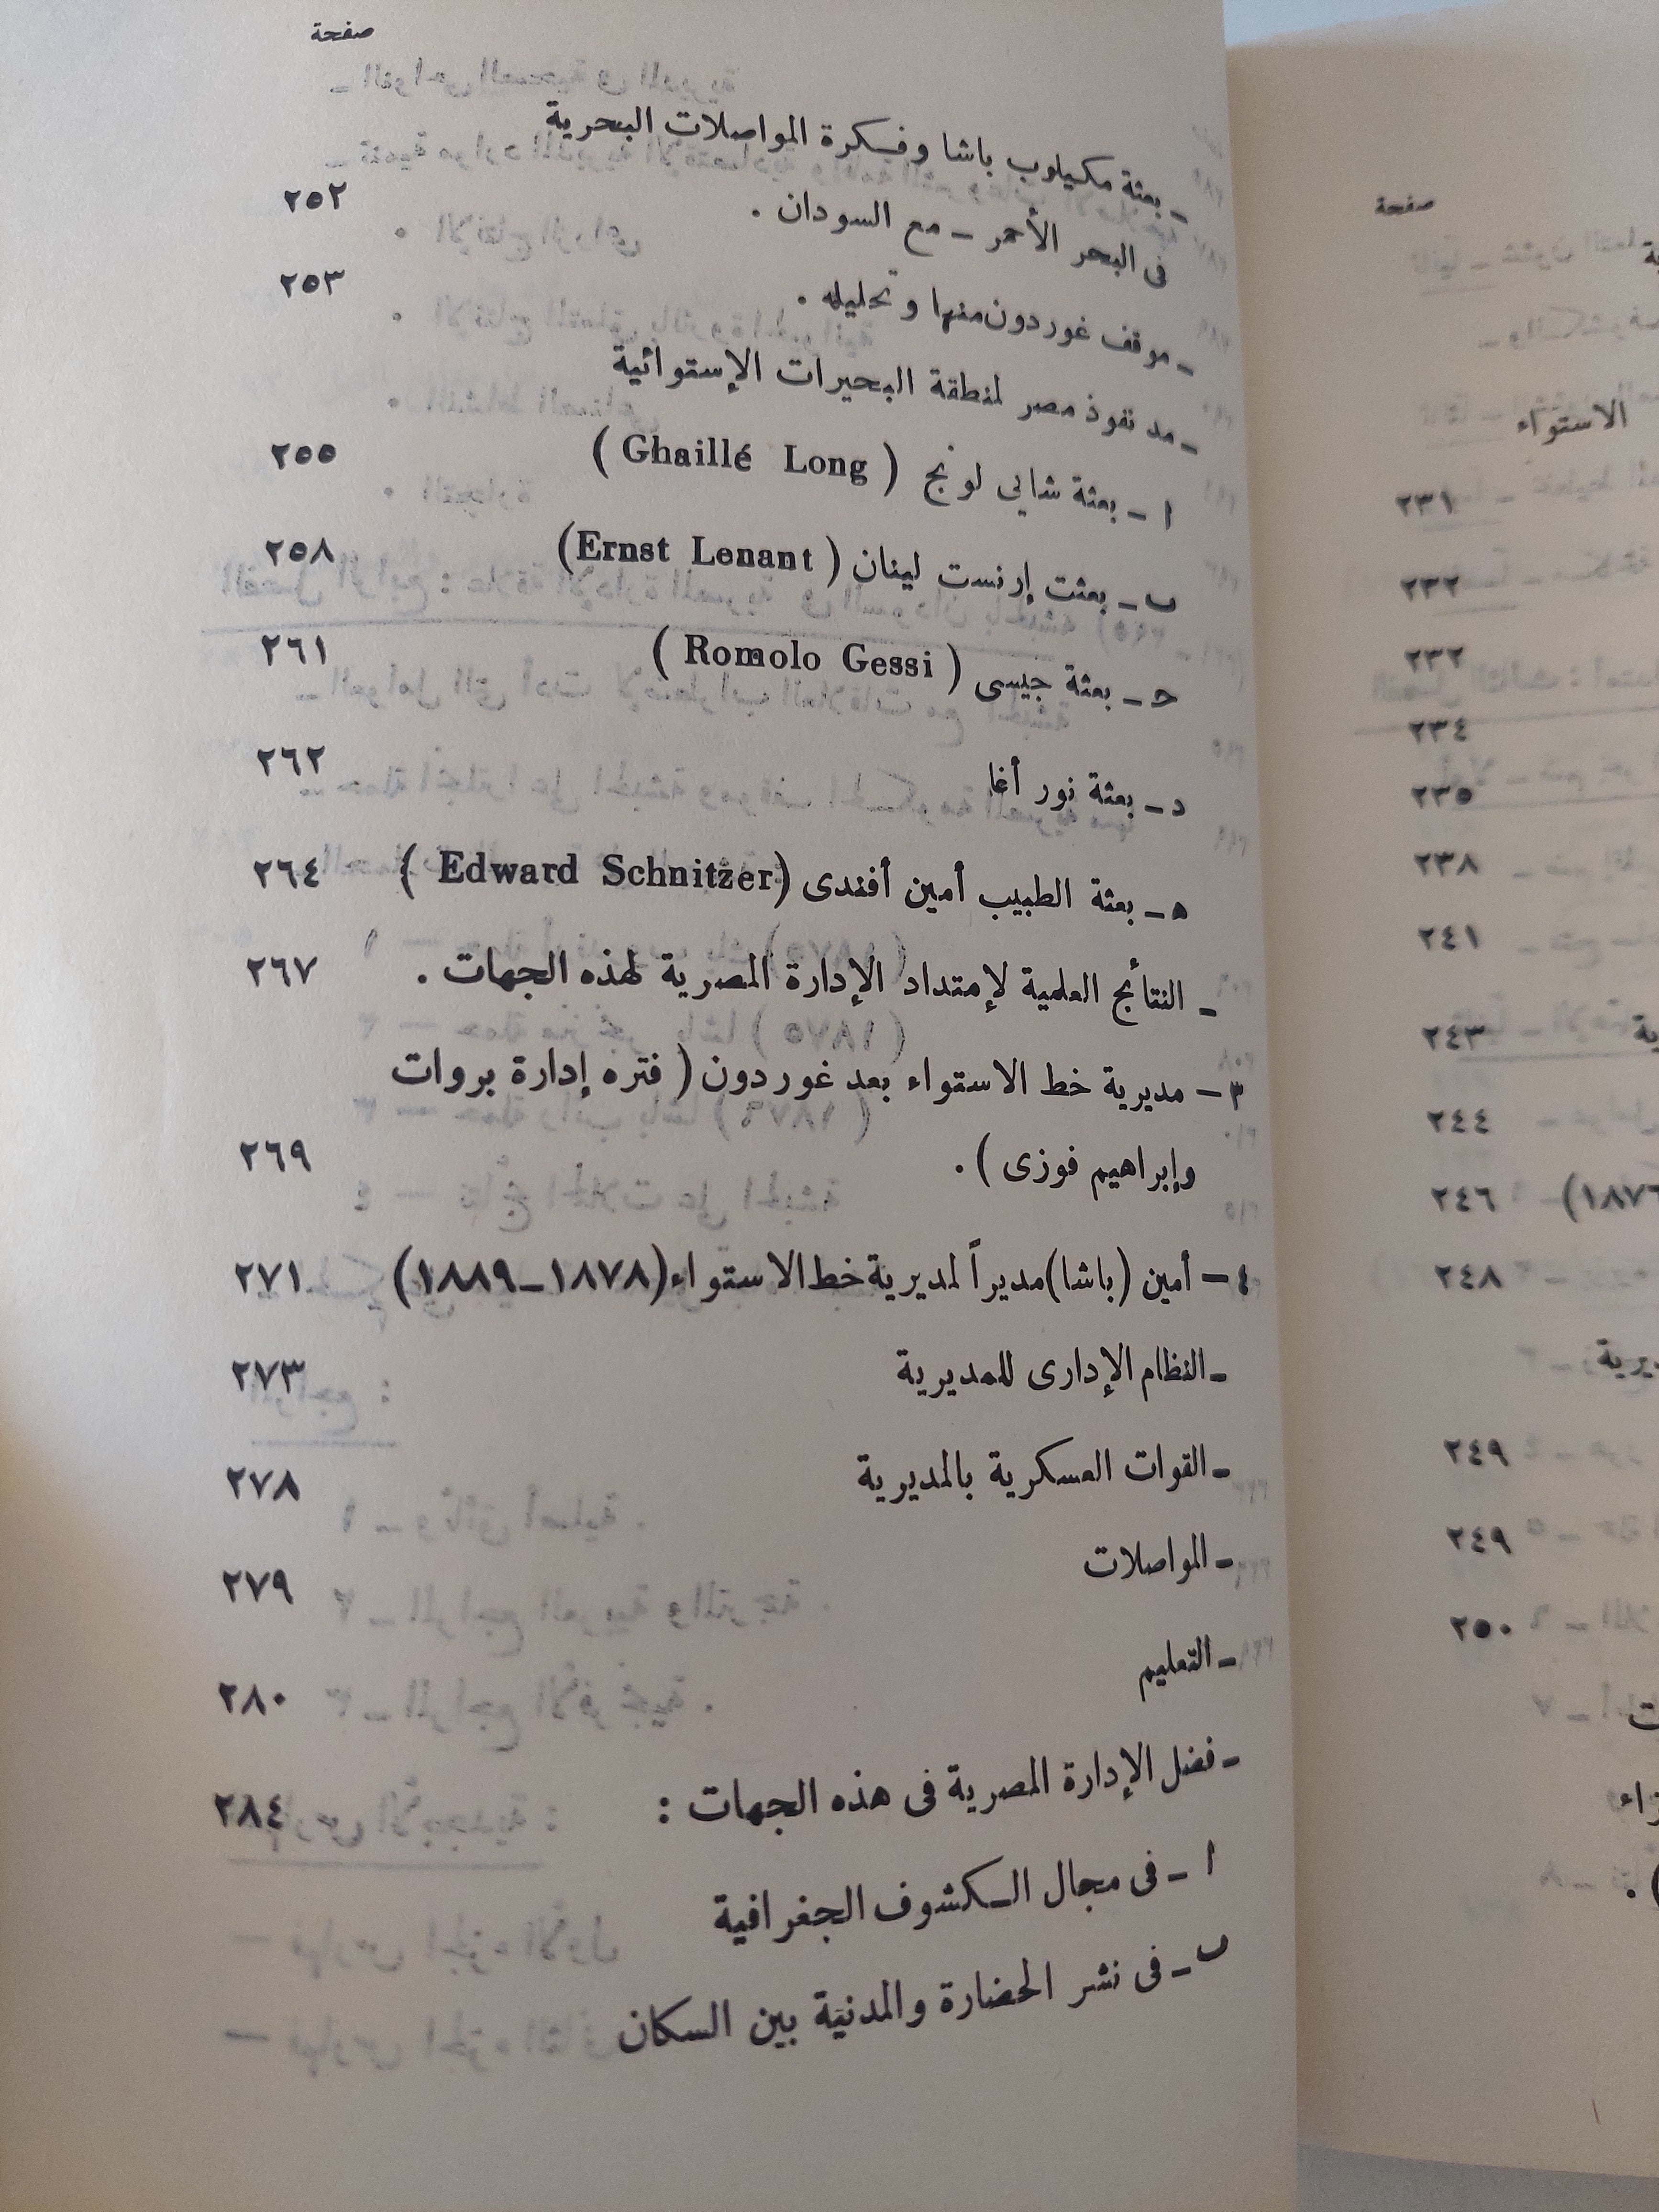 صفحة
ـ بعثة مكيلوب باشا وفكرة المواصلات البحرية
فى البحر الأحمر ـ مع السودان . ٢٥٢
ـ موقف غوردون منها وتحليله . ٢٥٣
ـ مد نفوذ مصر لمنطقة البحيرات الإستوائية
ا ـ بعثة شالي لونج ( Ghaillé Long ) ٢٥٥
ب ـ بعثت إرنست لينان ( Ernst Lenant) ٢٥٨
ح ـ بعثة جيسى ( Romolo Gessi ) ٢٦١
د ـ بعثة نور أغا ٢٦٢
ه ـ بعثة الطبيب أمين أفندى (Edward Schnitzer ) ٢٦٤
ـ النتائج العلمية لإمتداد الإدارة المصرية لهذه الجهات . ٢٦٧
٣ – مديرية خط الاستواء بعد غوردون ( فتره إدارة بروات
وإبراهيم فوزى ) . ٢٦٩
٤ – أمين (باشا) مديراً لمديرية خط الاستواء (١٨٧٨ـ١٨٨٩) ٢٧١
ـ النظام الإدارى للمديرية ٢٧٣
ـ القوات العسكرية بالمديرية ٢٧٨
ـ المواصلات ٢٧٩
ـ التعليم ٢٨٠
ـ فضل الإدارة المصرية فى هذه الجهات : ٢٨٤
ا ـ فى مجال الكشوف الجغرافية
ب ـ فى نشر الحضارة والمدنية بين السكان
صفحة
الاستواء
٢٣١
٢٣٢
٢٣٢
٢٣٤
٢٣٥
٢٣٨
٢٤١
٢٤٣
٢٤٤
٢٤٦
٢٤٨
٢٤٩
٢٤٩
٢٥٠